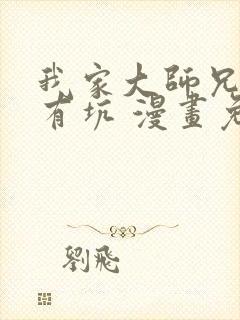 我家大師兄
有坑 漫畫免
劉飛